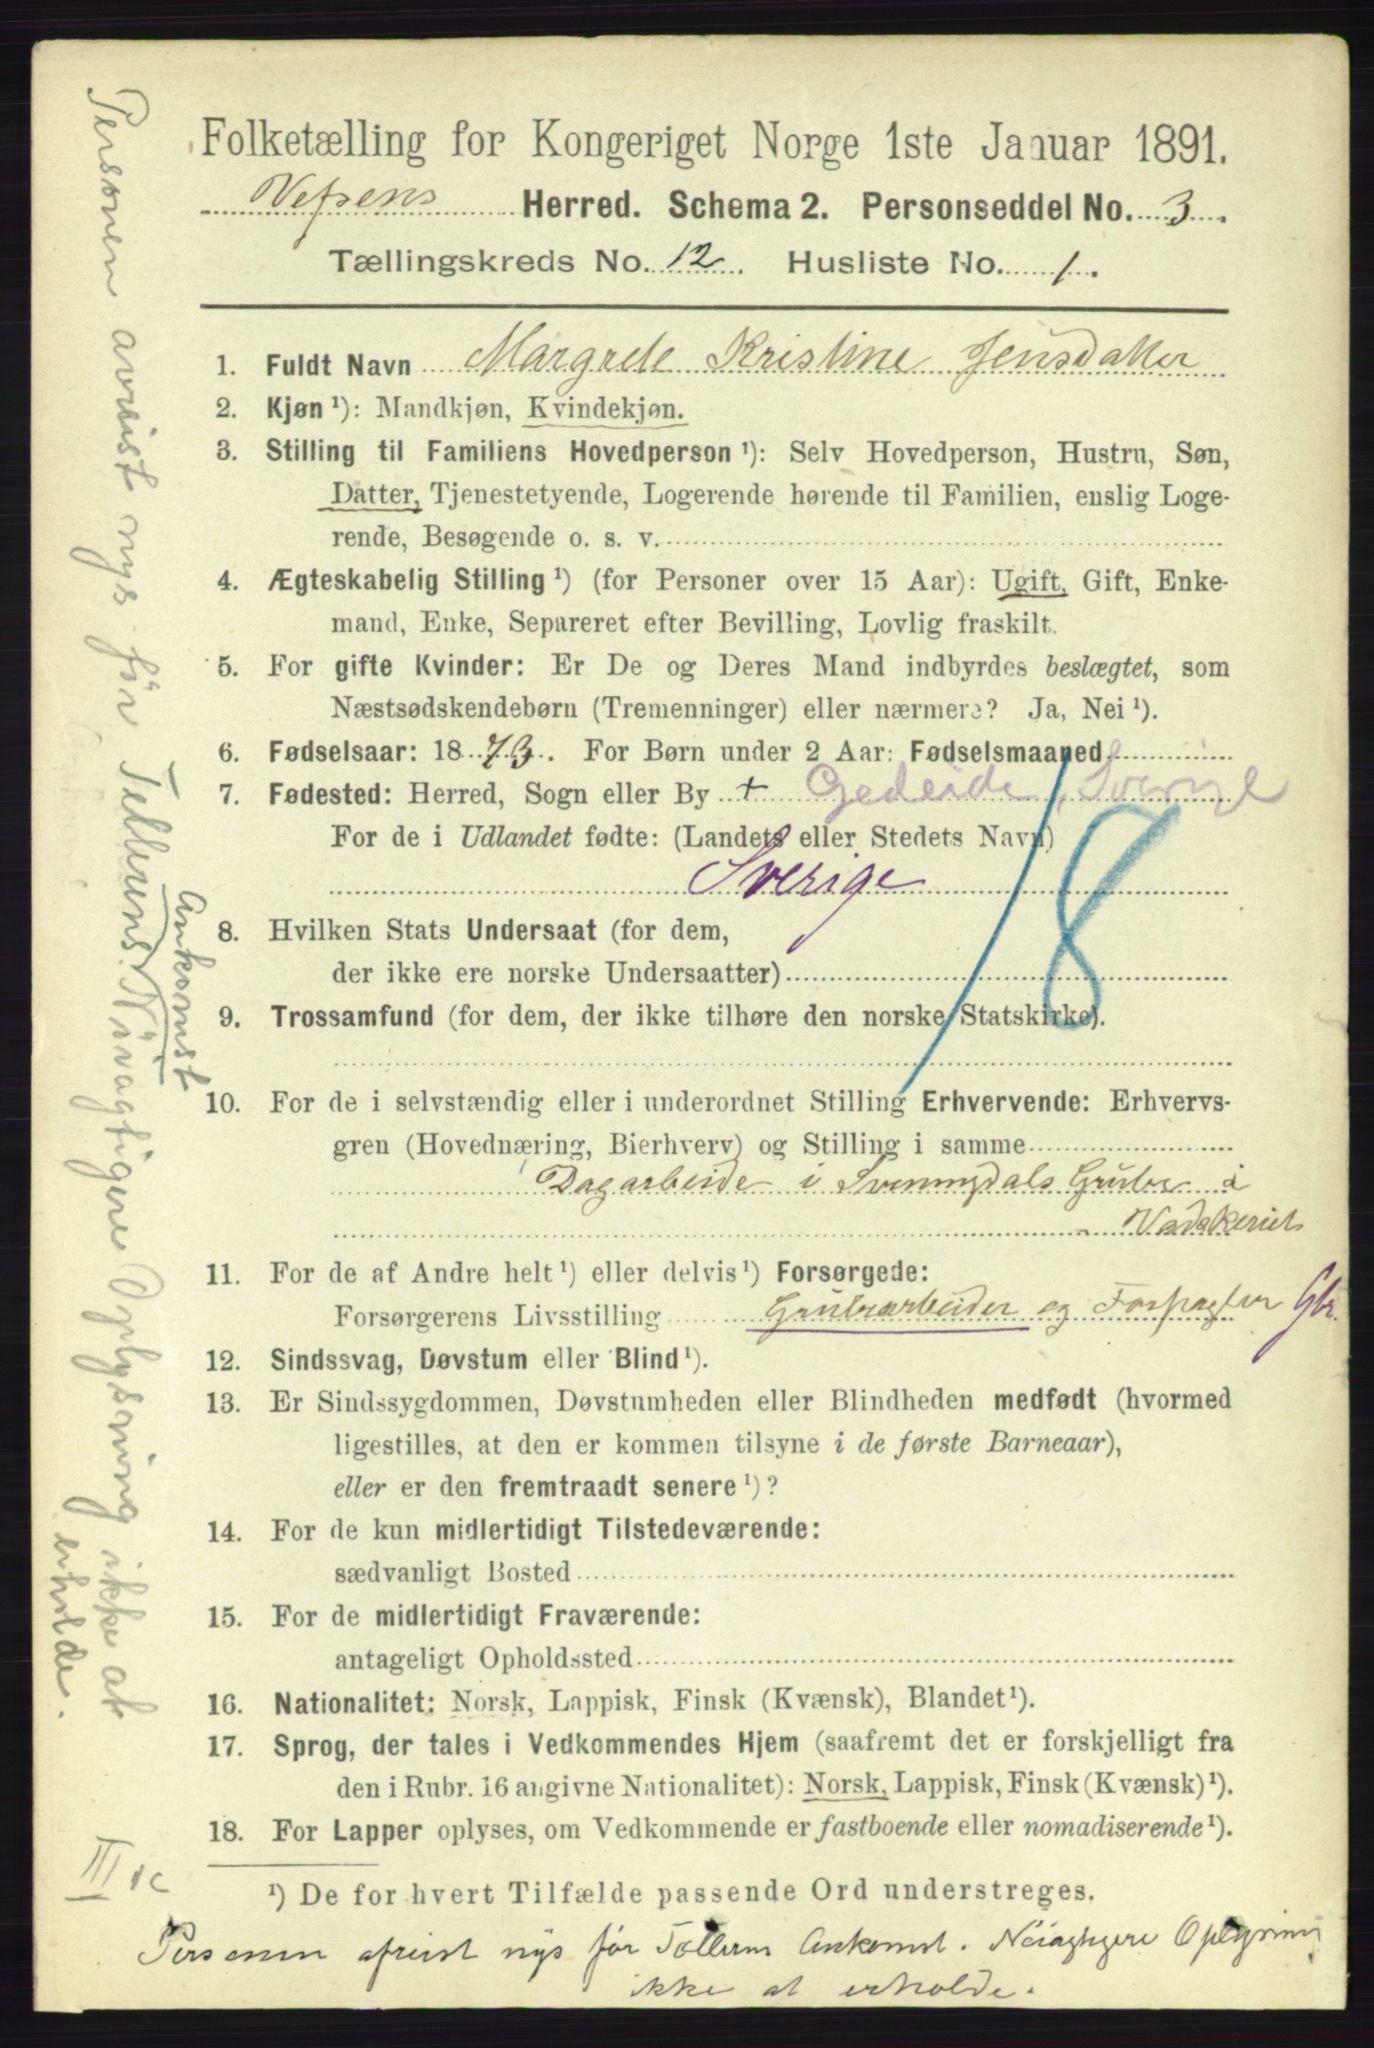 Folketælling for Kongeriget Norge 1ste Januar 1891.
Vefsens Herred. Schema 2. Personseddel No. 3.
Tællingskreds No. 12. Husliste No. 1.
1. Fuldt Navn Margrete Kristine Jensdatter
2. Kjøn ¹): Mandkjøn, Kvindekjøn.
3. Stilling til Familiens Hovedperson ¹): Selv Hovedperson, Hustru, Søn,
Datter, Tjenestetyende, Logerende hørende til Familien, enslig Loge-
rende, Besøgende o. s. v.
4. Ægteskabelig Stilling ¹) (for Personer over 15 Aar): Ugift, Gift, Enke-
mand, Enke, Separeret efter Bevilling, Lovlig fraskilt.
5. For gifte Kvinder: Er De og Deres Mand indbyrdes beslægtet, som
Næstsødskendebørn (Tremenninger) eller nærmere? Ja, Nei ¹).
6. Fødselsaar: 1873. For Børn under 2 Aar: Fødselsmaaned
7. Fødested: Herred, Sogn eller By + Gedeide, Sverige
For de i Udlandet fødte: (Landets eller Stedets Navn)
Sverige
18
8. Hvilken Stats Undersaat (for dem,
der ikke ere norske Undersaatter)
9. Trossamfund (for dem, der ikke tilhøre den norske Statskirke).
10. For de i selvstændig eller i underordnet Stilling Erhvervende: Erhvervs-
gren (Hovednæring, Bierhverv) og Stilling i samme
Dagarbeide i Svenningdals Grube i
Vadskeriet
11. For de af Andre helt ¹) eller delvis ¹) Forsørgede:
Forsørgerens Livsstilling Grubearbeider og Forpagter Gbr.
12. Sindssvag, Døvstum eller Blind ¹).
13. Er Sindssygdommen, Døvstumheden eller Blindheden medfødt (hvormed
ligestilles, at den er kommen tilsyne i de første Barneaar),
eller er den fremtraadt senere ¹)?
14. For de kun midlertidigt Tilstedeværende:
sædvanligt Bosted
15. For de midlertidigt Fraværende:
antageligt Opholdssted
16. Nationalitet: Norsk, Lappisk, Finsk (Kvænsk), Blandet ¹).
17. Sprog, der tales i Vedkommendes Hjem (saafremt det er forskjelligt fra
den i Rubr. 16 angivne Nationalitet): Norsk, Lappisk, Finsk (Kvænsk) ¹).
18. For Lapper oplyses, om Vedkommende er fastboende eller nomadiserende ¹).
¹) De for hvert Tilfælde passende Ord understreges.
Personen afreist nys før Tællerens Ankomst. Nøiagtigere Oplysning
ikke at erholde.
Personen avreist nys før Tellerens Ankomst Nøiagtigere Oplysning ikke at
erholde.
III 1c